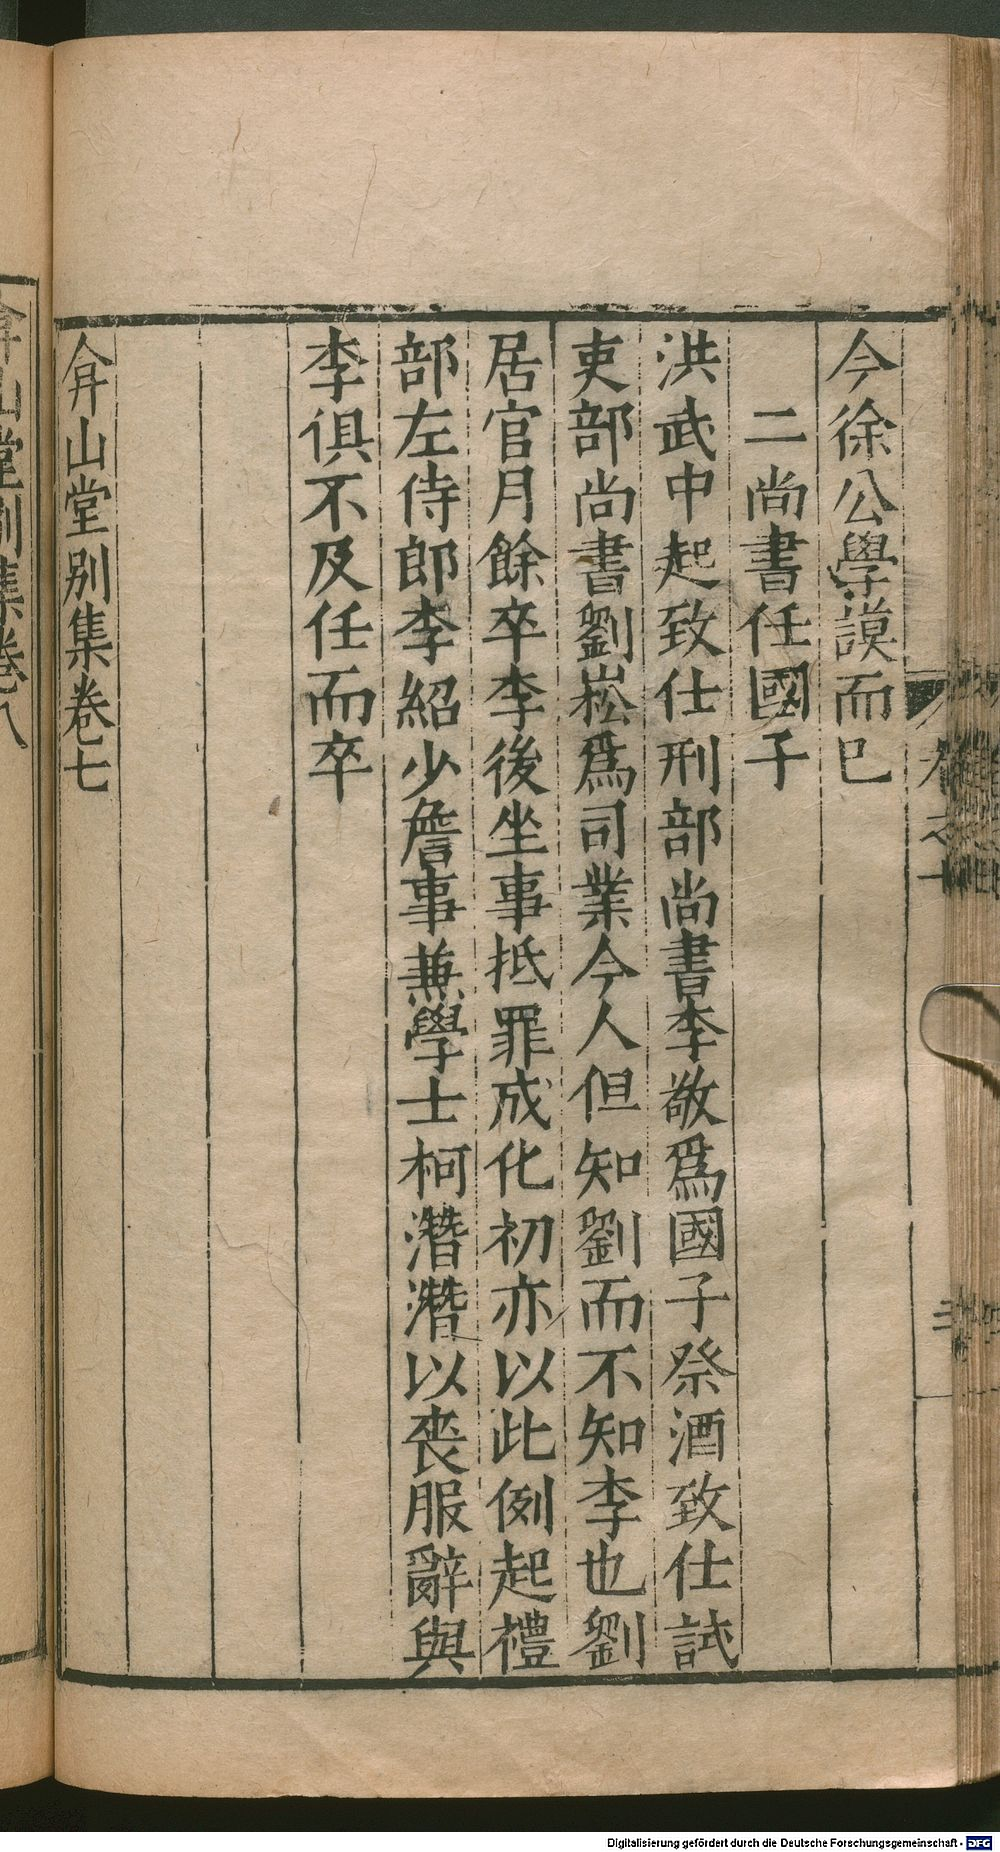 今徐公學謨而已
二尚書任國子
洪武中起致仕刑部尚書李敬爲國子祭酒致仕試
吏部尚書劉崧爲司業今人但知劉而不知李也劉
居官月餘卒李後坐事抵罪成化初亦以此例起禮
部左侍郎李紹少詹事兼學士柯潛潛以喪服辭與
李俱不及任而卒
弇山堂別集卷七
弇山堂別集卷八
Digitalisierung gefördert durch die Deutsche Forschungsgemeinschaft - DFG